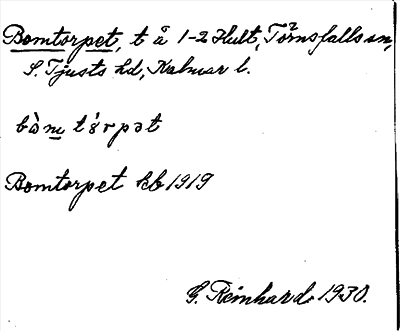 Bomtorpet, t å 1-2 Hult, Törnsfalls sn,
S. Tjusts hd, Kalmar l.
bòm tórpət
Bomtorpet kb 1919
G. Reinhard 1930.